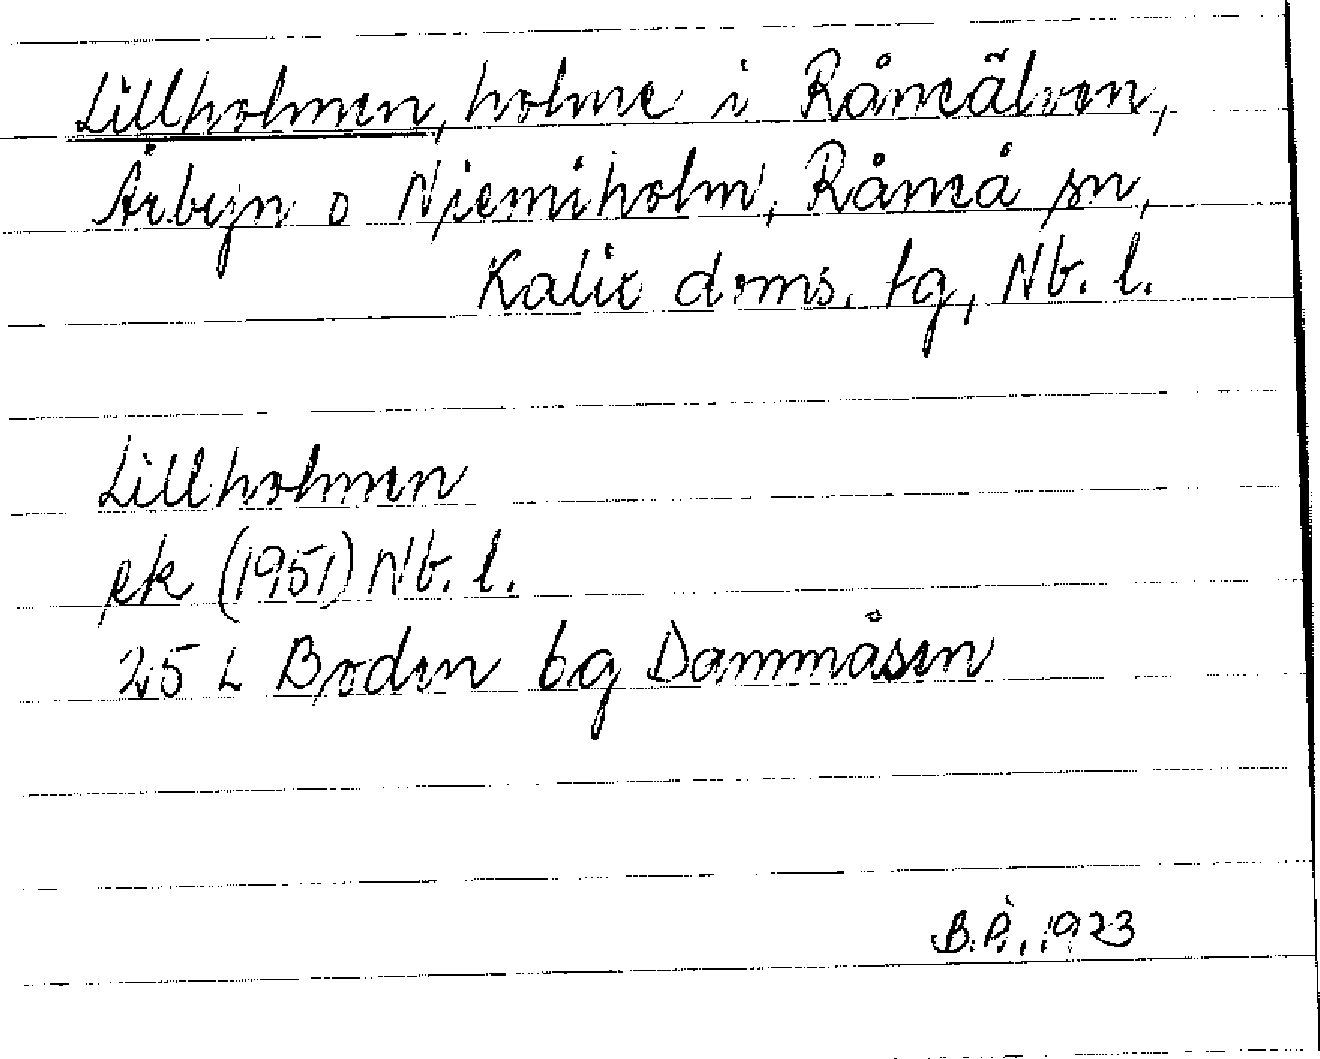 Lillholmen, holme i Råneälven,
Årbyn o Niemiholm, Råneå sn,
Kalix doms. tg, Nb. l.
Lillholmen
ek (1951) Nb. l.
25 L Boden bg Dammåsen
1923